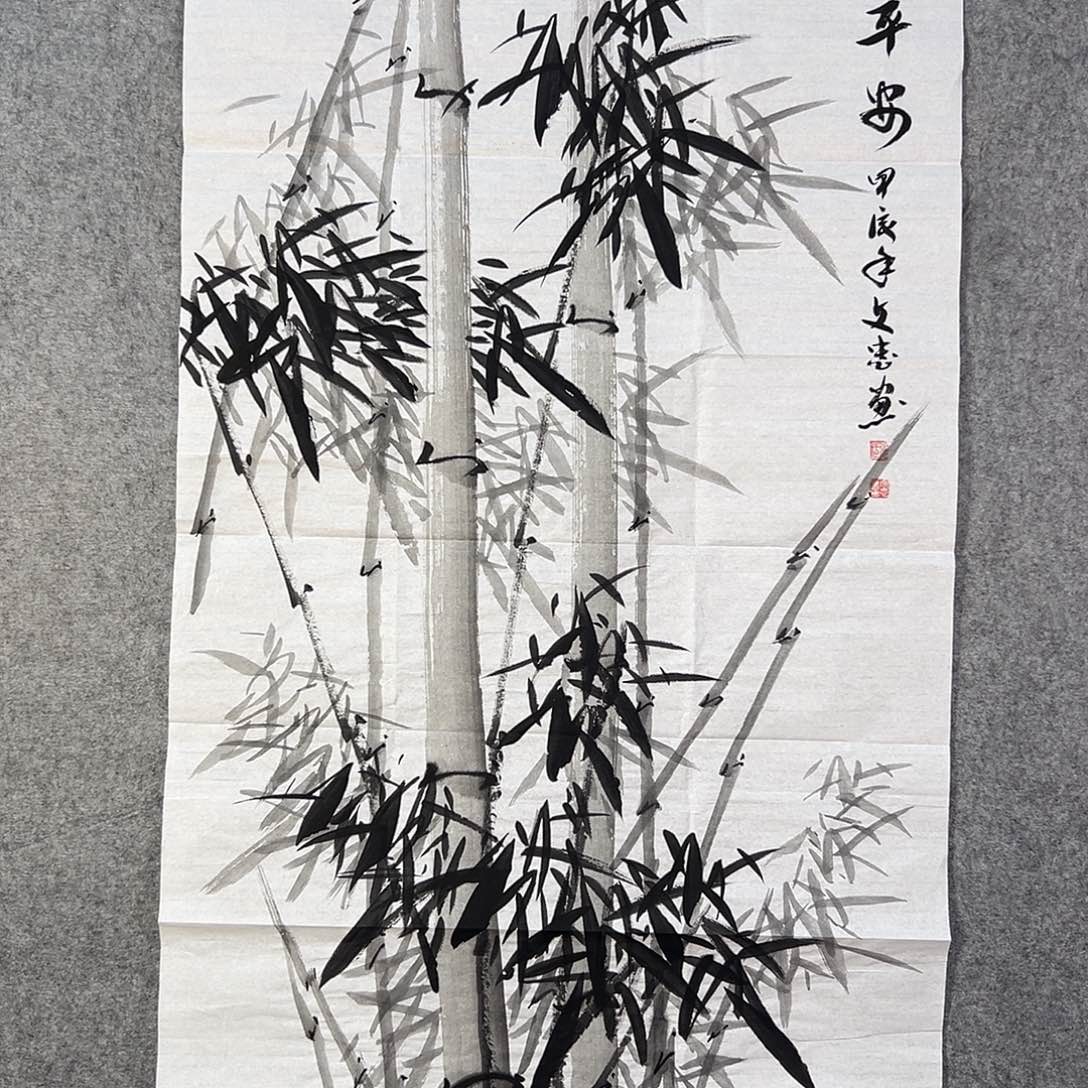 平安甲戌年文忠画